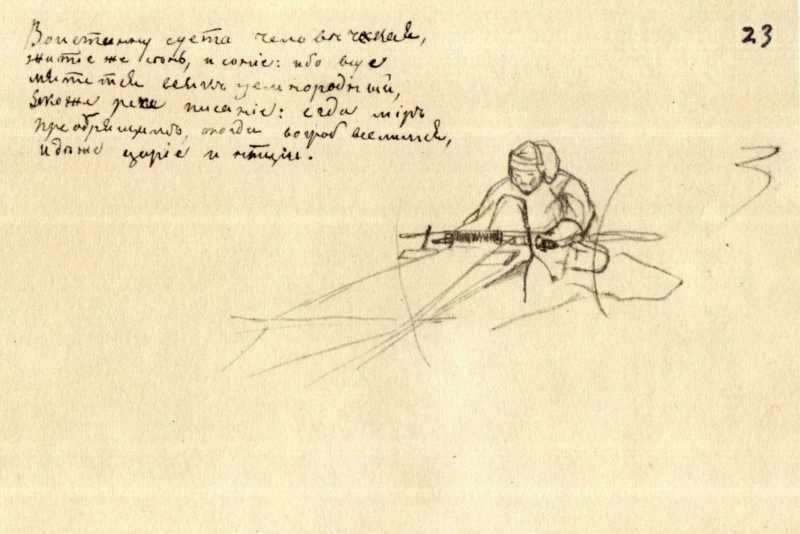 Воистинну суета человѣчская,
житіе же сѣнь, и соніе: ибо всуе
мятется всякъ земнородный,
якоже рече писаніе: егда міръ
преобрящимъ, тогда вогроб вселимся,
идѣже царіе и нищіи.
23
3